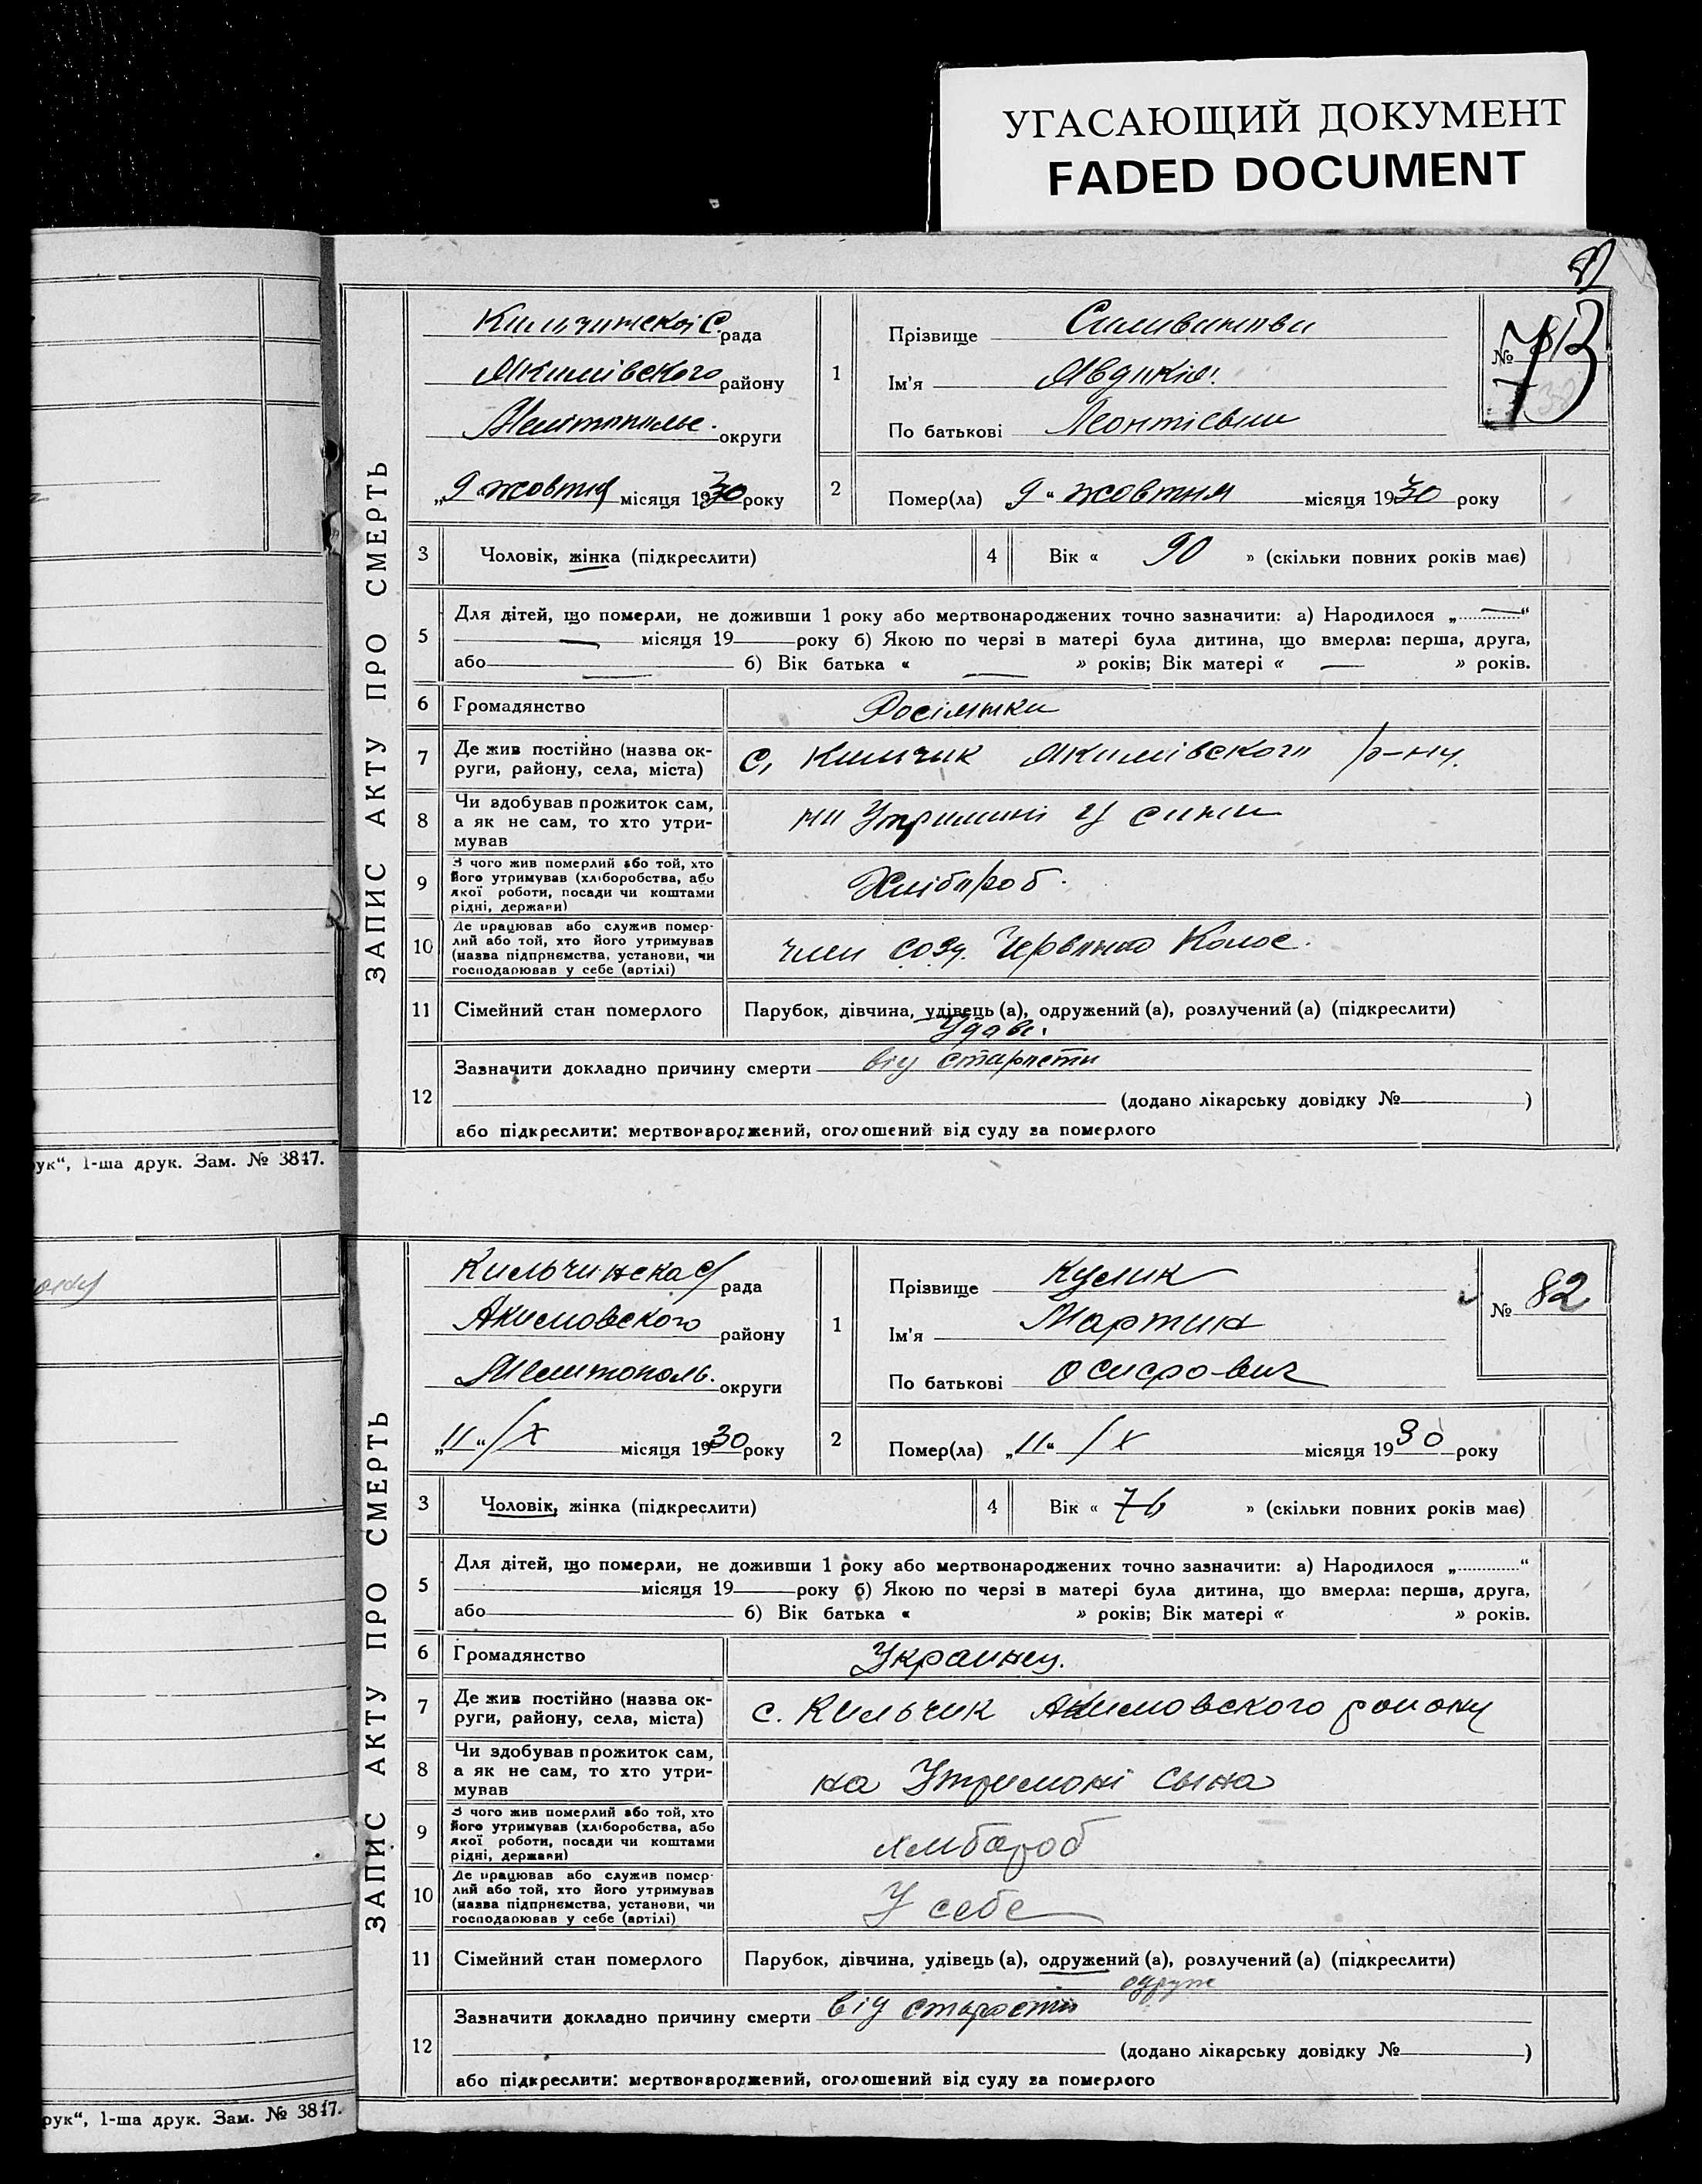 УГАСАЮЩИЙ ДОКУМЕНТ
FADED DOCUMENT
ЗАПИС АКТУ ПРО СМЕРТЬ
рада
Якимівского району
округи
„9 жовтня місяця 1930 року
1 Прізвище
Ім'я Явдикія
По батькові Леонтієвни
№ 81
73
2 Помер(ла) 9 “ жовтня місяця 1930 року
3 Чоловік, жінка (підкреслити)
4 Вік « 90 » (скільки повних років має)
5 Для дітей, що померли, не доживши 1 року або мертвонароджених точно зазначити: а) Народилося „ — “
— місяця 19 року б) Якою по черзі в матері була дитина, що вмерла: перша, друга,
або — б) Вік батька « — » років; Вік матері « — » років.
6 Громадянство Росіянка
7 Де жив постійно (назва ок-
руги, району, села, міста) с. Кильчик Якимівского р-ну.
8 Чи здобував прожиток сам,
а як не сам, то хто утри-
мував на Утримані у сина
9 З чого жив померлий або той, хто
його утримував (хліборобства, або
якої роботи, посади чи коштами
рідні, держави) Хлібороб.
10 Де працював або служив помер-
лий або той, хто його утримував
(назва підприємства, установи, чи
господарював у себе (артілі) член созу Колос.
11 Сімейний стан померлого Парубок, дівчина, удівець (а), одружений (а), розлучений (а) (підкреслити)
12 Зазначити докладно причину смерти від старости
(додано лікарську довідку № )
або підкреслити: мертвонароджений, оголошений від суду за померлого
рук“, 1-ша друк. Зам. № 3847.
ЗАПИС АКТУ ПРО СМЕРТЬ
Кильчинска рада
Акимовского району
Мелитополь. округи
„11“/X місяця 1930 року
1 Прізвище Кулик
Ім'я Мартин
По батькові Осифович
№ 82
2 Помер(ла) „11“ /X місяця 1930 року
3 Чоловік, жінка (підкреслити)
4 Вік « 76 » (скільки повних років має)
5 Для дітей, що померли, не доживши 1 року або мертвонароджених точно зазначити: а) Народилося „ “
місяця 19 року б) Якою по черзі в матері була дитина, що вмерла: перша, друга,
або б) Вік батька « » років; Вік матері « » років.
6 Громадянство Украинец.
7 Де жив постійно (назва ок-
руги, району, села, міста) с. Кильчик Акимовского району
8 Чи здобував прожиток сам,
а як не сам, то хто утри-
мував на Утримані сына
9 З чого жив померлий або той, хто
його утримував (хліборобства, або
якої роботи, посади чи коштами
рідні, держави) хлибароб
10 Де працював або служив помер-
лий або той, хто його утримував
(назва підприємства, установи, чи
господарював у себе (артілі) У себе
11 Сімейний стан померлого Парубок, дівчина, удівець (а), одружений (а), розлучений (а) (підкреслити)
одруж
12 Зазначити докладно причину смерти від старости
(додано лікарську довідку № )
або підкреслити: мертвонароджений, оголошений від суду за померлого
рук“, 1-ша друк. Зам. № 3847.